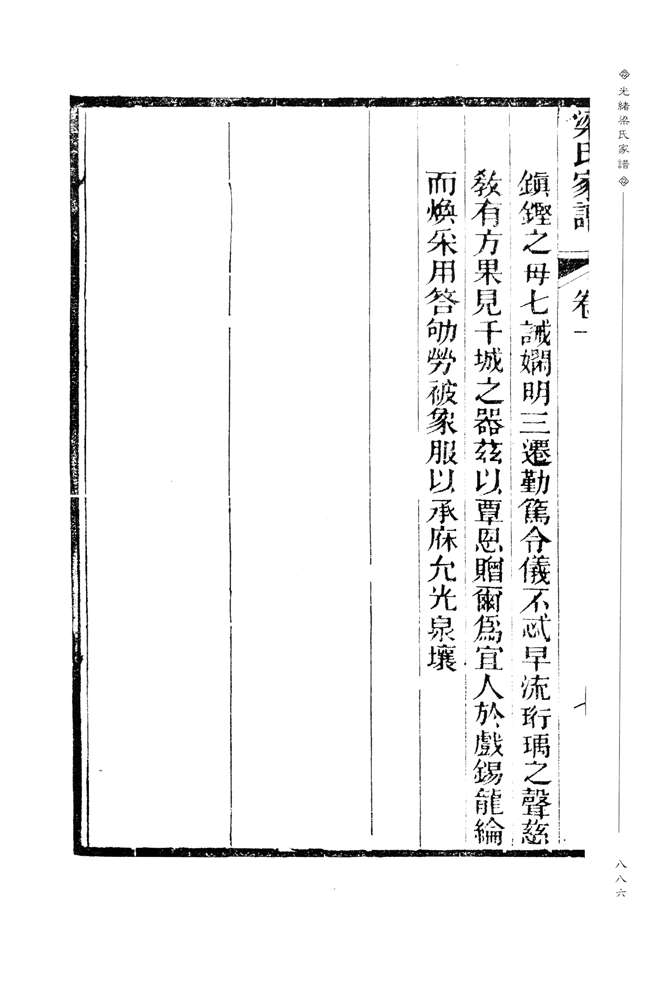 光緒梁氏家譜
梁氏家譜 卷一 七
鎮鏗之母七誡嫻明三遷勤篤令儀不忒早流珩瑀之聲慈
敎有方果見干城之器茲以覃恩贈爾爲宜人於戲錫龍綸
而煥采用答劬勞被象服以承庥允光泉壤
八八六